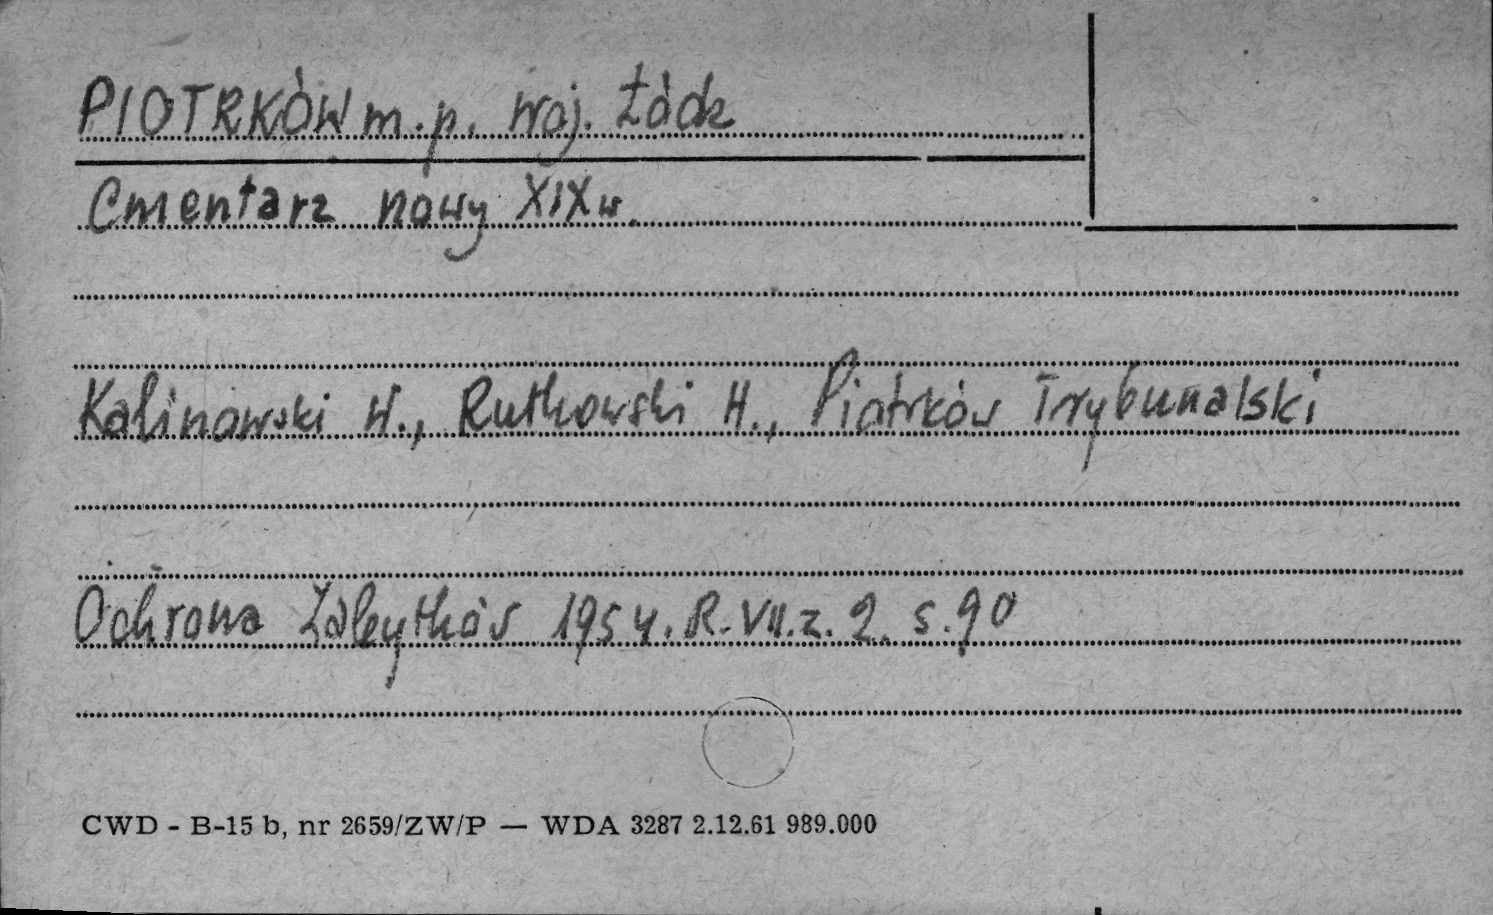 PIOTRKÓW m.p. woj. Łódz
Cmentarz nowy XIXw.
Kalinowski W., Rutkowski H., Piotrków Trybunalski
Ochrona Zabytków 1954. R. VII. z. 2. s. 90
CWD - B-15 b, nr 2659/ZW/P — WDA 3287 2.12.61 989.000